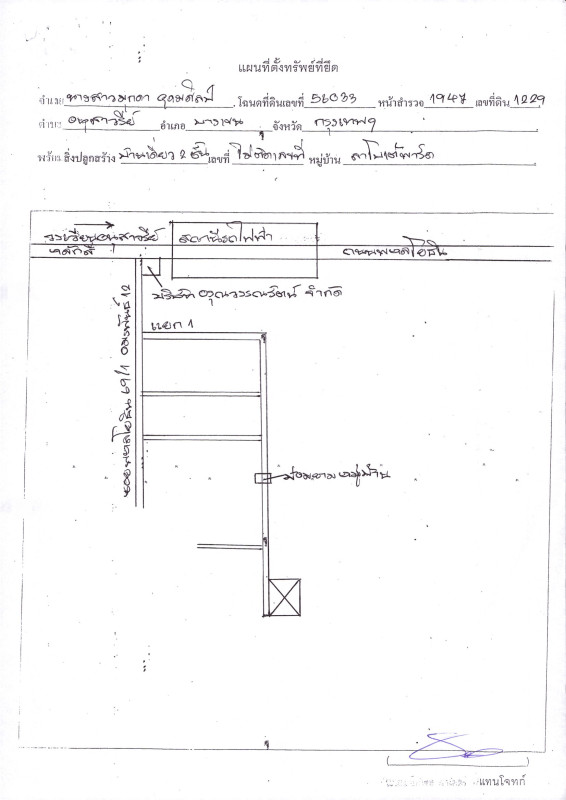 แผนที่ตั้งทรัพย์ที่ยึด
จำเลย นางสาวมุกดา อุดมศิลป์ โฉนดที่ดินเลขที่ 56033 หน้าสำรวจ 1947 เลขที่ดิน 1229
ตำบล อนุสาวรีย์ อำเภอ บางเขน จังหวัด กรุงเทพฯ
พร้อมสิ่งปลูกสร้าง บ้านเดี่ยว 2 ชั้น เลขที่ ไม่ติดเลขที่ หมู่บ้าน
วงเวียนอนุสาวรีย์ สถานีรถไฟฟ้า
หลักสี่ ถนนพหลโยธิน
บริษัท อรุณวรรณรัตน์ จำกัด
แยก 1
ซอยพหลโยธิน 69/1 อมรพันธ์ 12
ป้อมยามหมู่บ้าน
แทนโจทก์